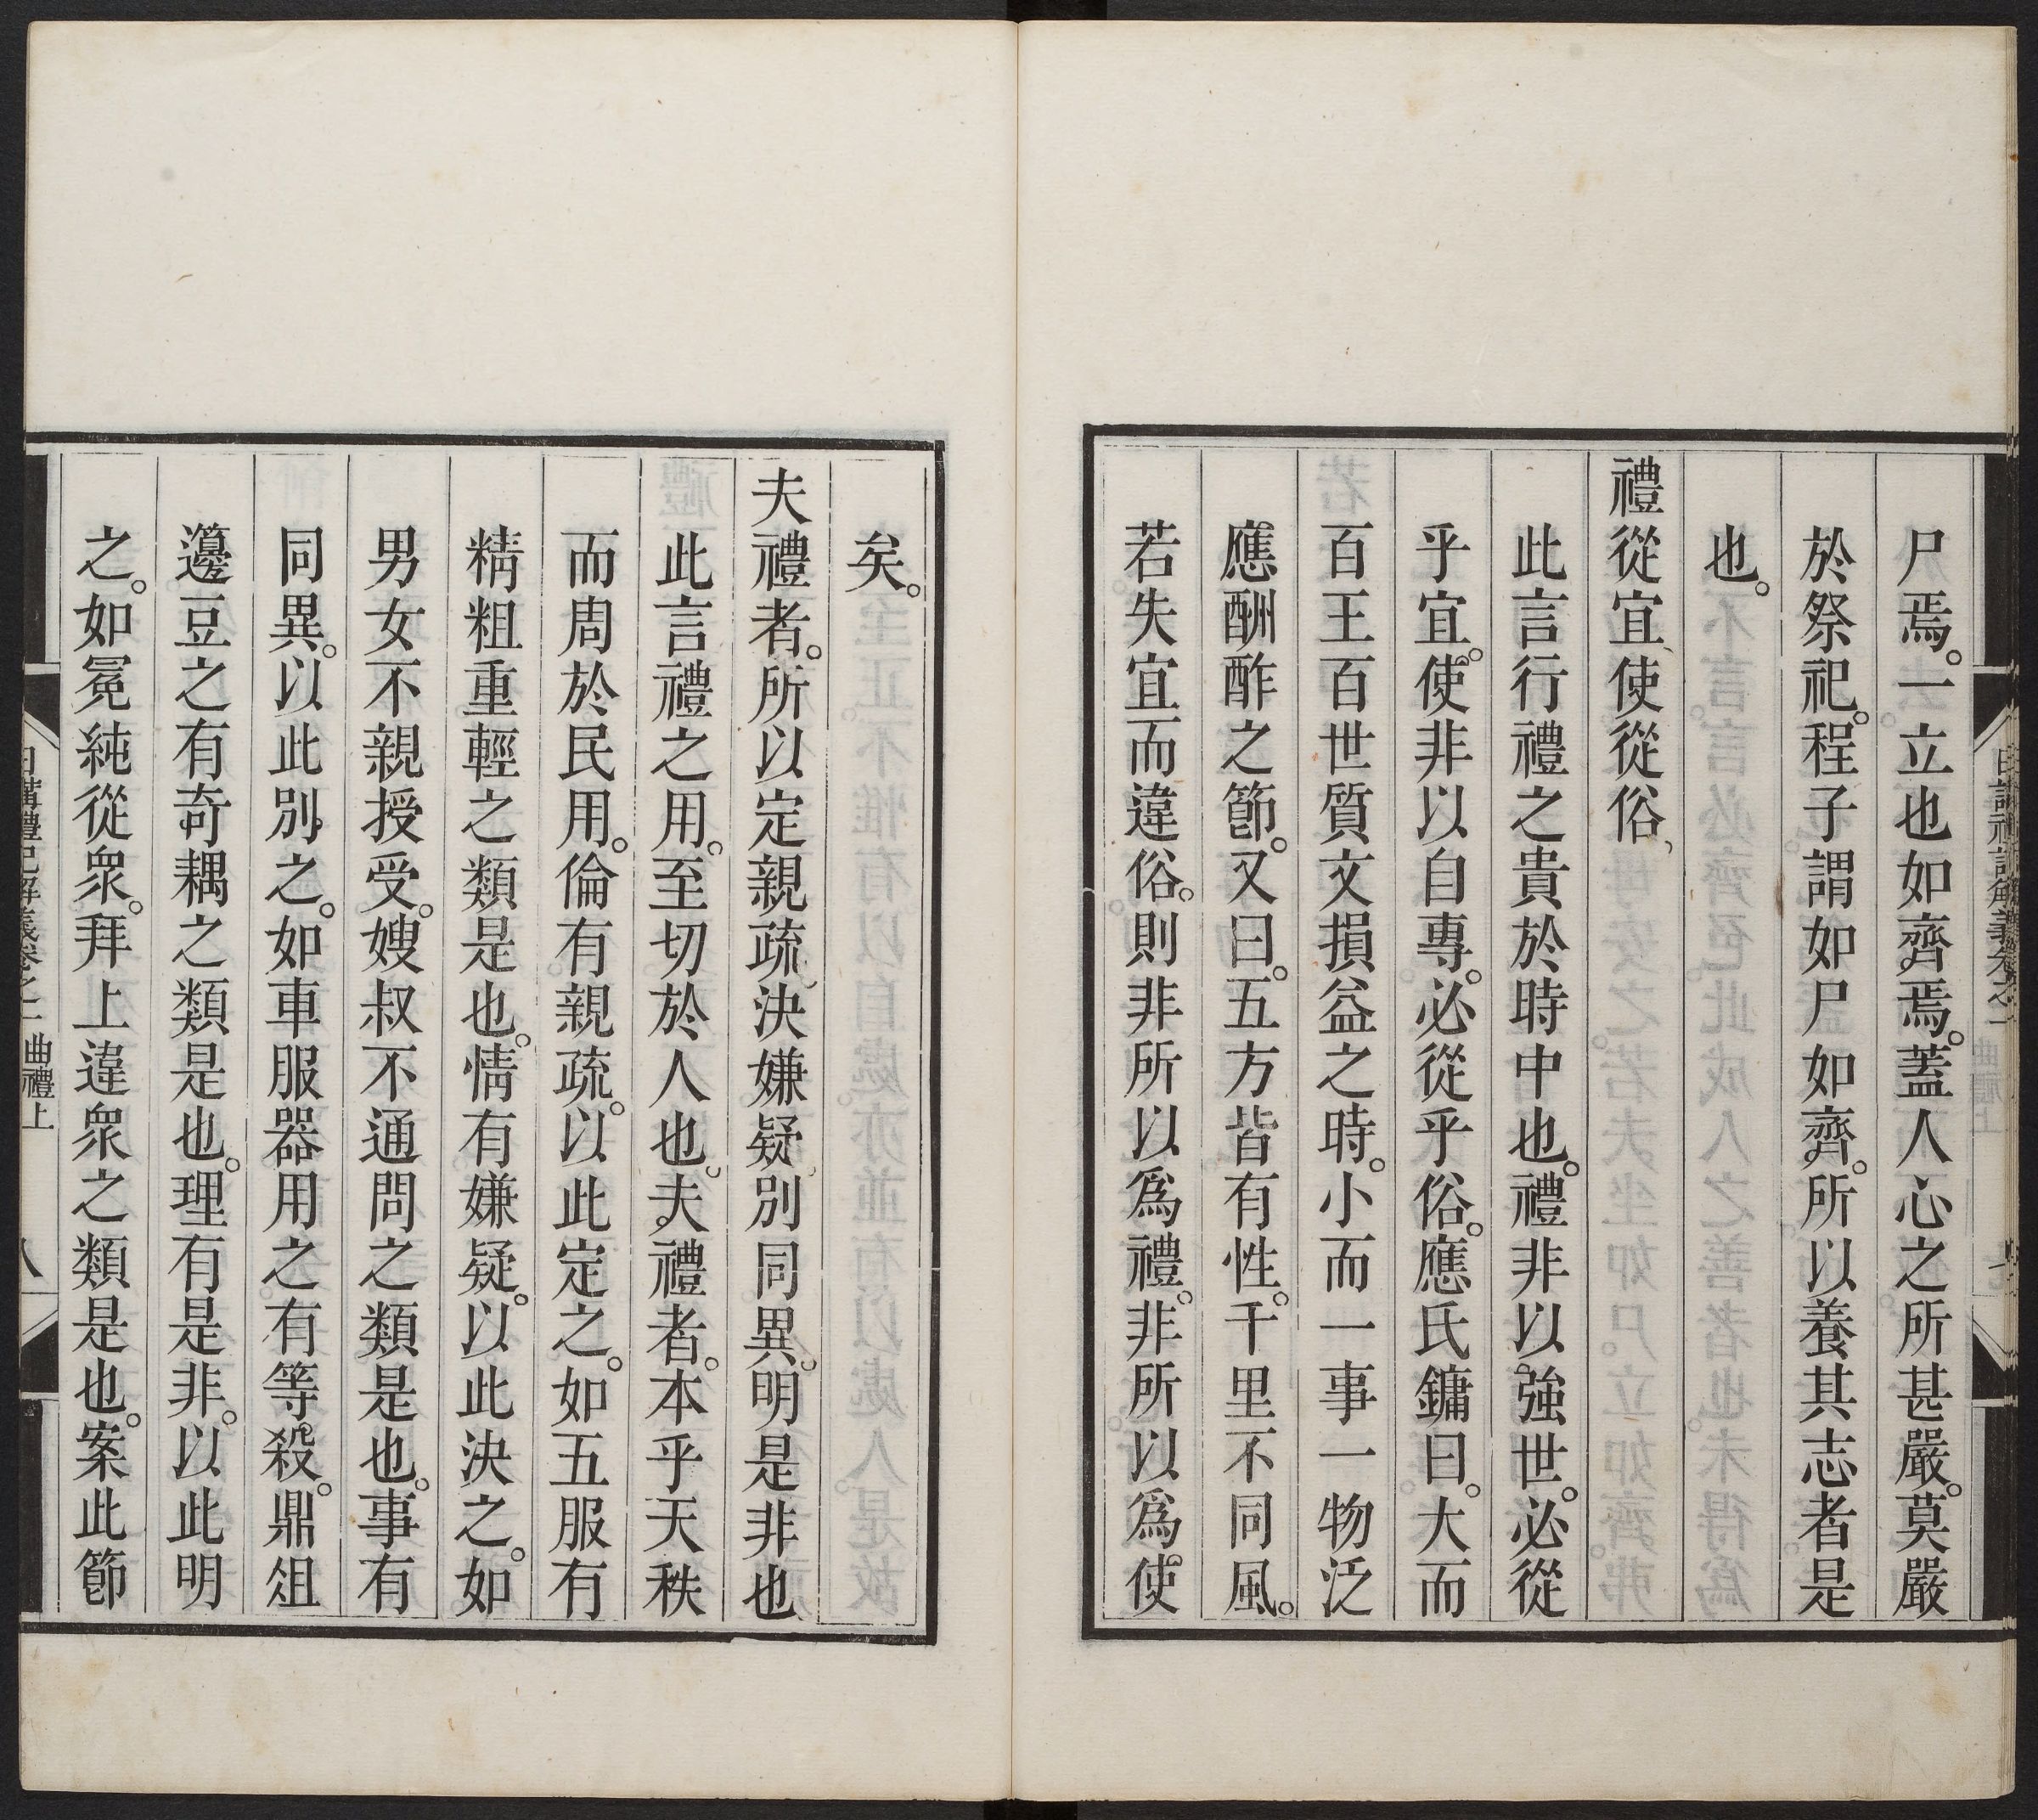 尸焉。一立也如齊焉。蓋人心之所甚嚴。莫嚴
於祭祀。程子謂如尸如齊。所以養其志者是
也。
禮從宜、使從俗、
此言行禮之貴於時中也。禮非以強世。必從
乎宜。使非以自專。必從乎俗。應氏鏞曰。大而
百王百世質文損益之時。小而一事一物泛
應酬酢之節。又曰。五方皆有性。千里不同風。
若失宜而違俗。則非所以爲禮。非所以爲使
矣。
夫禮者。所以定親疏、決嫌疑、別同異、明是非也
此言禮之用。至切於人也。夫禮者。本乎天秩
而周於民用。倫有親疏。以此定之。如五服有
精粗重輕之類是也。情有嫌疑。以此決之。如
男女不親授受。嫂叔不通問之類是也。事有
同異。以此別之。如車服器用之有等殺。鼎俎
籩豆之有奇耦之類是也。理有是非。以此明
之。如冕純從衆。拜上違衆之類是也。案此節
日講禮記解義卷之一 曲禮上 八